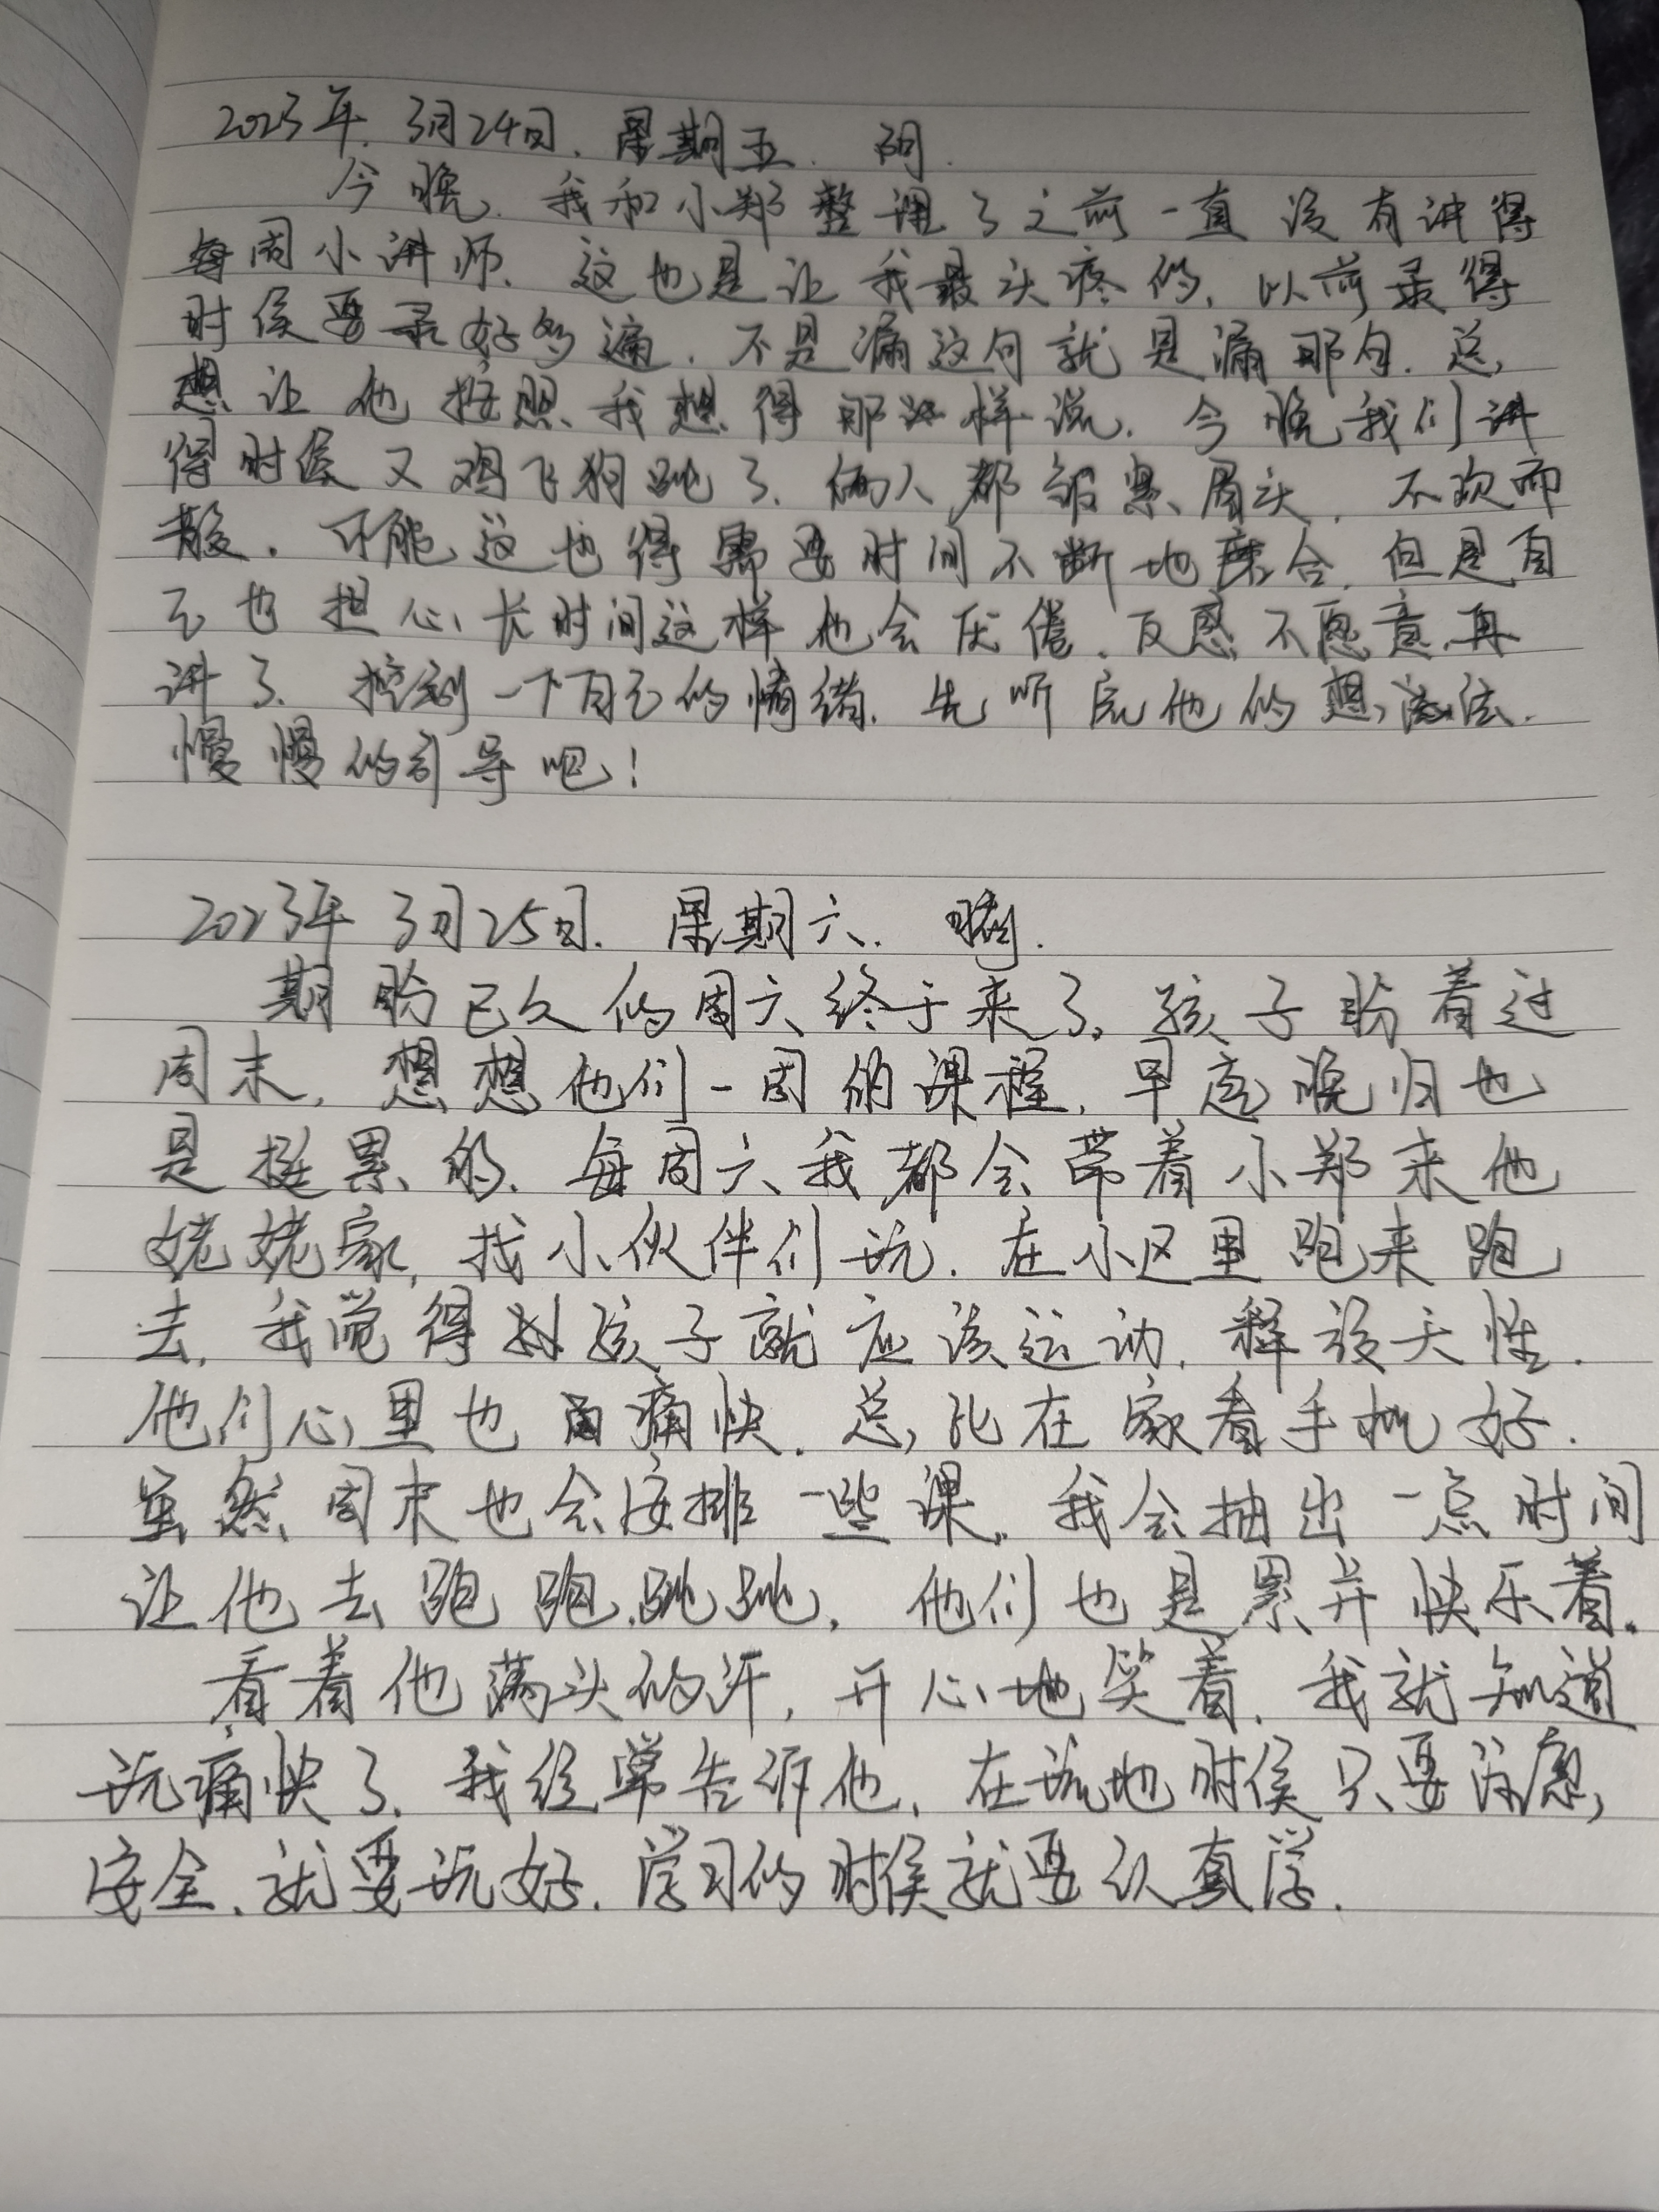 2023年.3月24日.星期五.阴.
今晚.我和小郑整理了之前一直没有讲得
每周小讲师.这也是让我最头疼的,以前录得
时侯要录好多遍.不是漏这句就是漏那句.总
想让他按照我想得那样说.今晚我们讲
得时侯又鸡飞狗跳了.俩人都皱紧眉头,不欢而
散.可能这也得需要时间不断地磨合,但是自
己也担心长时间这样他会厌倦.反感不愿意再
讲了.控制一下自己的情绪.先听完他的想法.
慢慢的引导吧!
2023年3月25日.星期六.晴.
期盼已久的周六终于来了,孩子盼着过
周末,想想他们一周的课程,早起晚归也
是挺累的.每周六我都会带着小郑来他
姥姥家,找小伙伴们玩.在小区里跑来跑
去,我觉得孩子就应该运动,释放天性.
他们心里也痛快.总比在家看手机好.
虽然周末也会安排一些课,我会抽出一点时间
让他去跑跑跳跳,他们也是累并快乐着.
看着他满头的汗,开心地笑着.我就知道
玩痛快了.我经常告诉他,在玩地时侯只要健康,
安全.就要玩好.学习的时侯就要认真学.